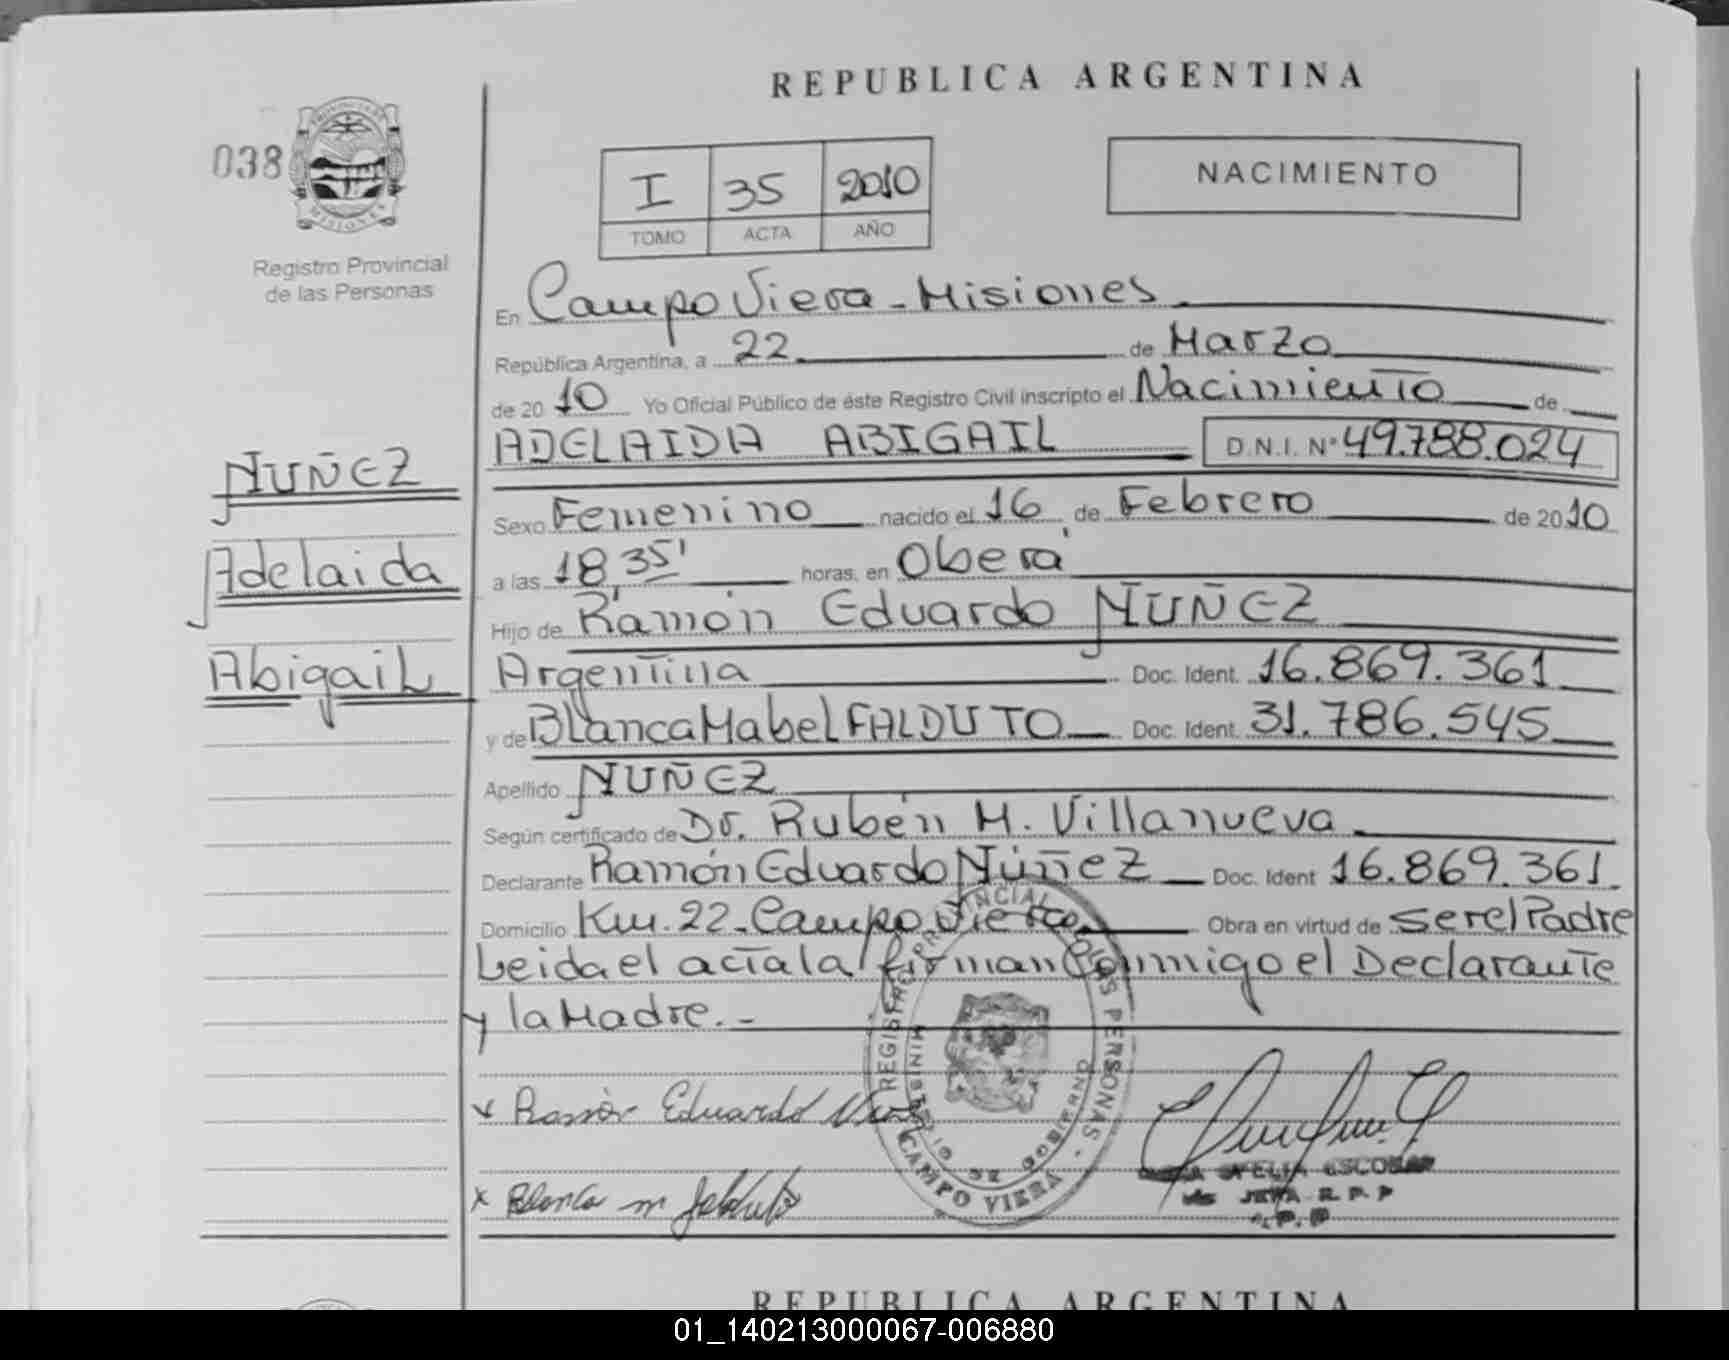 REPUBLICA ARGENTINA
038
PROVINCIA DE MISIONES
Registro Provincial
de las Personas
I 35 2010
TOMO ACTA AÑO
NACIMIENTO
En Campo Viera - Misiones
República Argentina, a 22 de Marzo
de 2010 Yo Oficial Público de éste Registro Civil inscripto el Nacimiento de
ADELAIDA ABIGAIL D.N.I. Nº 49.788.024
NUÑEZ
Adelaida
Abigail
Sexo Femenino nacido el 16 de Febrero de 2010
a las 18,35' horas, en Oberá
Hijo de Ramón Eduardo NUÑEZ
Argentina Doc. Ident. 16.869.361
y de Blanca Mabel FALDUTO Doc. Ident. 31.786.545
Apellido NUÑEZ
Según certificado de Dr. Rubén M. Villanueva
Declarante Ramón Eduardo Núñez Doc. Ident 16.869.361
Domicilio Km. 22 - Campo Viera Obra en virtud de ser el Padre
Leida el acta la firman Conmigo el Declarante
y la Madre. -
x Ramón Eduardo
x Blanca M Falduto
REGISTRO PROVINCIAL DE LAS PERSONAS - CAMPO VIERA
MINISTERIO DE GOBIERNO
OFELIA ESCOBAR
JEFA R.P.P
REPUBLICA ARGENTINA
01_140213000067-006880